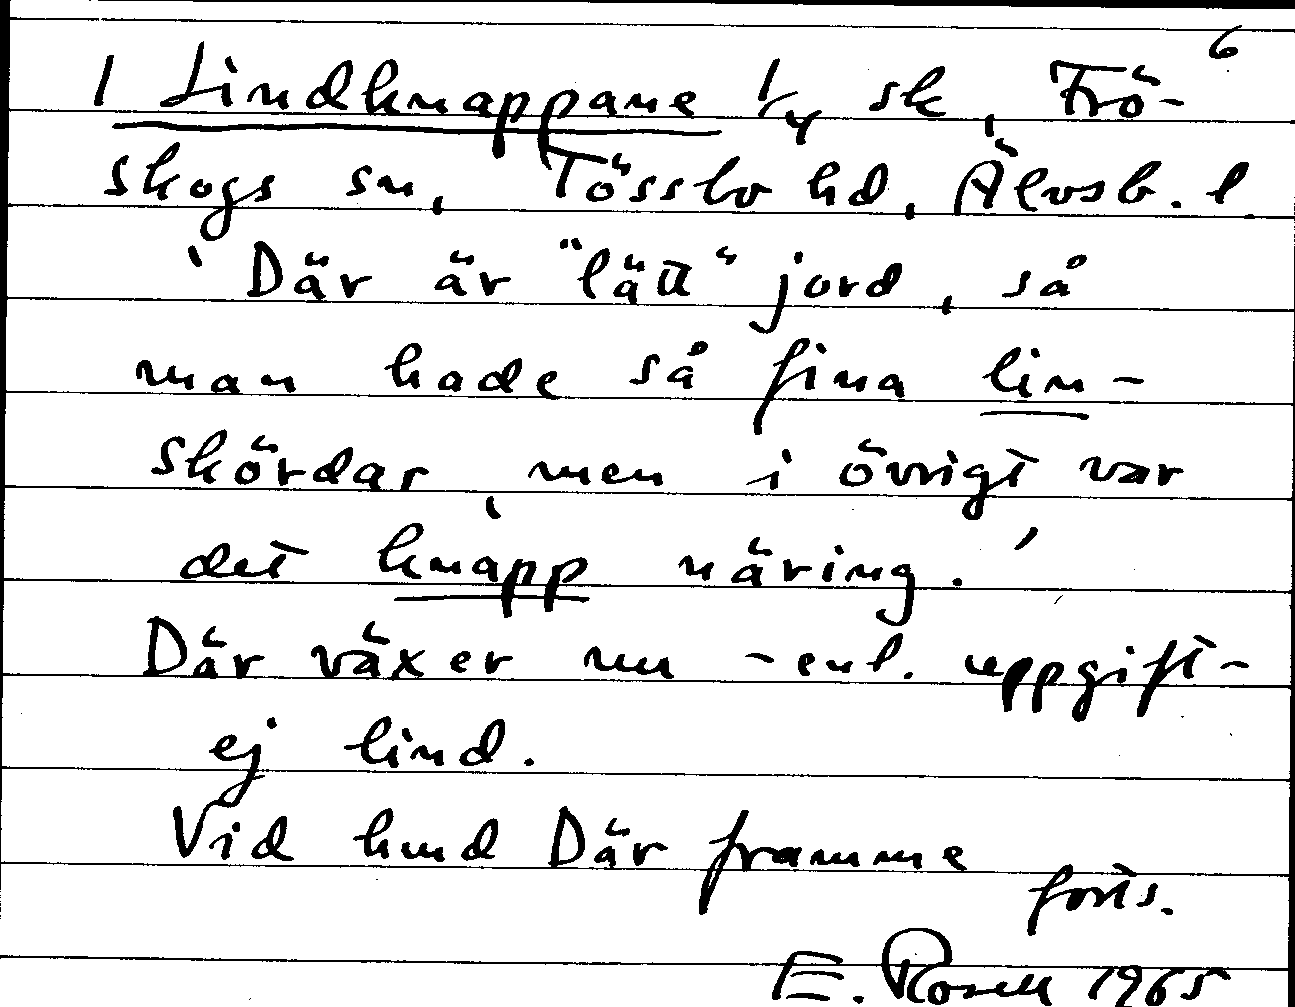 6
1 Lindknappane 1/4 sk, Frö-
skogs sn, Tössbo hd, Älvsb. l.
'Där är "lätt" jord, så
man hade så fina lin-
skördar, men i övrigt var
det knapp näring.'
Där växer nu - enl. uppgift -
ej lind.
Vid hmd Där framme
forts.
E. Rosell 1965